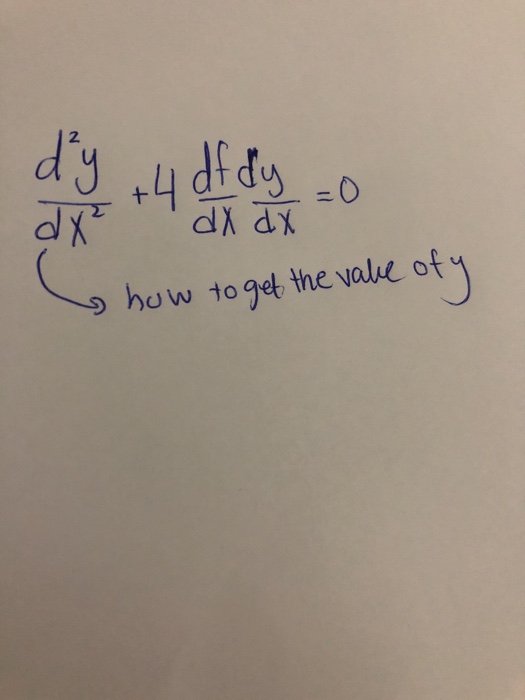 d²y/dx² + 4 df/dx dy/dx = 0
how to get the value of y